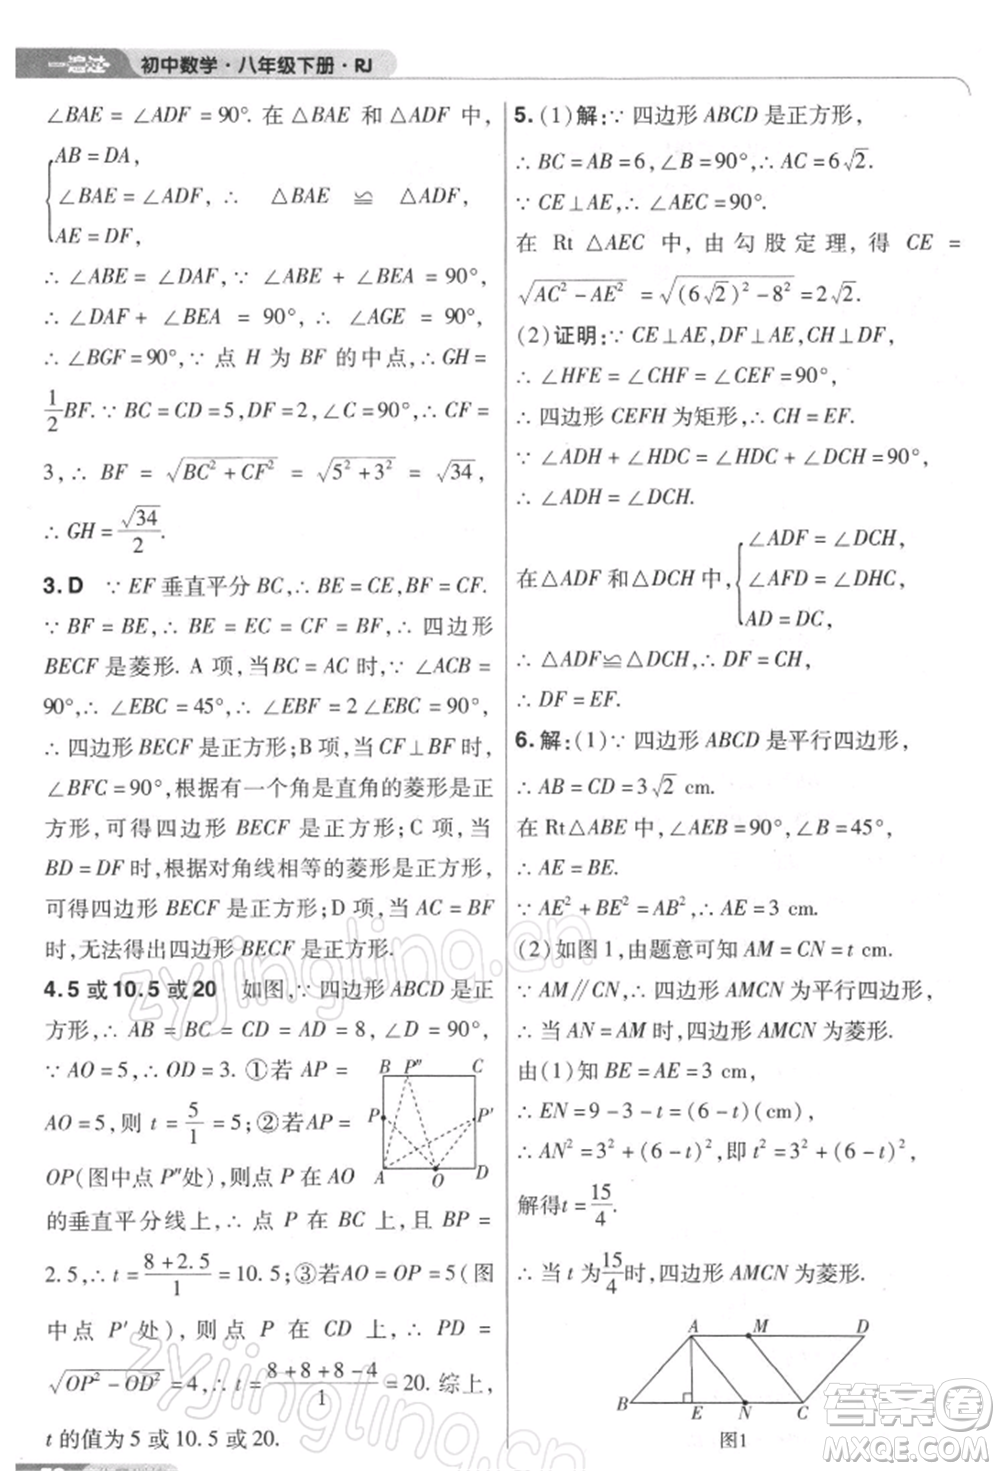 一遍过 初中数学·八年级下册·RJ
∠BAE = ∠ADF = 90°. 在 △BAE 和 △ADF 中,
{AB = DA,
∠BAE = ∠ADF, ∴ △BAE ≌ △ADF,
AE = DF,
∴ ∠ABE = ∠DAF, ∵ ∠ABE + ∠BEA = 90°,
∴ ∠DAF + ∠BEA = 90°, ∴ ∠AGE = 90°,
∴ ∠BGF = 90°, ∵ 点 H 为 BF 的中点, ∴ GH =
1/2 BF. ∵ BC = CD = 5, DF = 2, ∠C = 90°, ∴ CF =
3, ∴ BF = √(BC² + CF²) = √(5² + 3²) = √34,
∴ GH = √34/2.
3. D ∵ EF 垂直平分 BC, ∴ BE = CE, BF = CF.
∵ BF = BE, ∴ BE = EC = CF = BF, ∴ 四边形
BECF 是菱形. A 项, 当 BC = AC 时, ∵ ∠ACB =
90°, ∴ ∠EBC = 45°, ∴ ∠EBF = 2∠EBC = 90°,
∴ 四边形 BECF 是正方形; B 项, 当 CF⊥BF 时,
∠BFC = 90°, 根据有一个角是直角的菱形是正
方形, 可得四边形 BECF 是正方形; C 项, 当
BD = DF 时, 根据对角线相等的菱形是正方形,
可得四边形 BECF 是正方形; D 项, 当 AC = BF
时, 无法得出四边形 BECF 是正方形.
4. 5 或 10.5 或 20 如图, ∵ 四边形 ABCD 是正
方形, ∴ AB = BC = CD = AD = 8, ∠D = 90°,
∵ AO = 5, ∴ OD = 3. ①若 AP =
AO = 5, 则 t = 5/1 = 5; ②若 AP =
OP(图中点 P″处), 则点 P 在 AO
的垂直平分线上, ∴ 点 P 在 BC 上, 且 BP =
2.5, ∴ t = (8 + 2.5)/1 = 10.5; ③若 AO = OP = 5(图
中点 P′处), 则点 P 在 CD 上, ∴ PD =
√(OP² - OD²) = 4, ∴ t = (8 + 8 + 8 - 4)/1 = 20. 综上,
t 的值为 5 或 10.5 或 20.
B P″ C
P P′
A O D
5. (1)解: ∵ 四边形 ABCD 是正方形,
∴ BC = AB = 6, ∠B = 90°, ∴ AC = 6√2.
∵ CE⊥AE, ∴ ∠AEC = 90°.
在 Rt △AEC 中, 由勾股定理, 得 CE =
√(AC² - AE²) = √((6√2)² - 8²) = 2√2.
(2)证明: ∵ CE⊥AE, DF⊥AE, CH⊥DF,
∴ ∠HFE = ∠CHF = ∠CEF = 90°,
∴ 四边形 CEFH 为矩形, ∴ CH = EF.
∵ ∠ADH + ∠HDC = ∠HDC + ∠DCH = 90°,
∴ ∠ADH = ∠DCH.
在 △ADF 和 △DCH 中, {∠ADF = ∠DCH,
∠AFD = ∠DHC,
AD = DC,
∴ △ADF≌△DCH, ∴ DF = CH,
∴ DF = EF.
6. 解: (1) ∵ 四边形 ABCD 是平行四边形,
∴ AB = CD = 3√2 cm.
在 Rt△ABE 中, ∠AEB = 90°, ∠B = 45°,
∴ AE = BE.
∵ AE² + BE² = AB², ∴ AE = 3 cm.
(2)如图 1, 由题意可知 AM = CN = t cm.
∵ AM∥CN, ∴ 四边形 AMCN 为平行四边形,
∴ 当 AN = AM 时, 四边形 AMCN 为菱形.
由(1)知 BE = AE = 3 cm,
∴ EN = 9 - 3 - t = (6 - t)(cm),
∴ AN² = 3² + (6 - t)², 即 t² = 3² + (6 - t)²,
解得 t = 15/4.
∴ 当 t 为 15/4 时, 四边形 AMCN 为菱形.
A M D
B E N C
图1
zyjingling.cn
zyjingling
答案圈
MXQE.COM